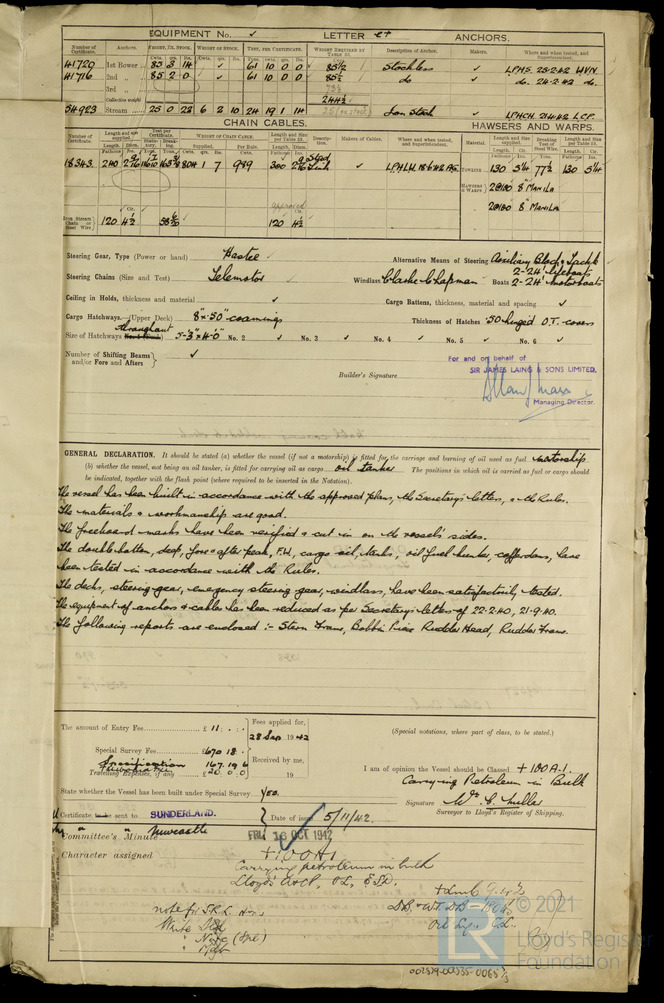 EQUIPMENT No. ✓ LETTER et ANCHORS.
Number of Certificate. Anchors. WEIGHT, EX. STOCK. WEIGHT OF STOCK. TEST, PER CERTIFICATE. WEIGHT REQUIRED BY TABLE 53. Description of Anchor. Makers. Where and when tested, and Superintendent.
41720 1st Bower 85 3 14 ✓ 61 10 0 0 85½ Stockless ✓ LPHS. 25-2-42 WVN.
41716 2nd 85 2 0 ✓ 61 10 0 0 85½ do ✓ do. 24-2-42 do.
3rd
Collective weight 244½
54923 Stream 25 0 22 6 2 10 24 19 1 14 Iron Stock LPHCH. 21-4-42 LCP.
CHAIN CABLES. HAWSERS AND WARPS.
Number of Certificate. Length and size supplied. Test per Certificate. WEIGHT OF CHAIN CABLE. Length and Size per Table 53. Description. Makers of Cables. Where and when tested, and Superintendent. Material. Length and Size supplied. Breaking Test of Steel Wire. Length and Size per Table 53.
18343. 240 804 1 7 989 300 Stud Link ✓ TOWLINE 130 5¼ 77½ 130 5¼
HAWSERS & WARPS 2@180 8" MANILA
approved 2@180 8" MANILA
Iron Stream Chain or Steel Wire 120 4½ 120 4½
Steering Gear, Type (Power or hand) Hastie ✓ Alternative Means of Steering Auxiliary Block & Tackle
Steering Chains (Size and Test) Telemotor Windlass Clarke Chapman Boats 2-24' lifeboats 2-24' motorboats
Ceiling in Holds, thickness and material ✓ Cargo Battens, thickness, material and spacing ✓
Cargo Hatchways.—(Upper Deck) 8" x .50" coamings Thickness of Hatches .50 hinged O.T. covers
Size of Hatchways throughout 5'-3" x 4'-0" No. 2 ✓ No. 3 ✓ No. 4 ✓ No. 5 ✓ No. 6 ✓
Number of Shifting Beams and/or Fore and Afters ✓
For and on behalf of
SIR JAMES LAING & SONS LIMITED.
Builder's Signature
Managing Director.
GENERAL DECLARATION. It should be stated (a) whether the vessel (if not a motorship) is fitted for the carriage and burning of oil used as fuel motorship
(b) whether the vessel, not being an oil tanker, is fitted for carrying oil as cargo oil tanker The positions in which oil is carried as fuel or cargo should
be indicated, together with the flash point (where required to be inserted in the Notation).
The vessel has been built in accordance with the approved plans, the Secretary's letters, & the Rules.
The materials & workmanship are good.
The freeboard marks have been verified & cut in on the vessel's sides.
The double bottom, deep, fore & after peak, F.W., cargo oil, tanks, oil fuel bunker, cofferdams, have
been tested in accordance with the Rules.
The decks, steering gear, emergency steering gear, windlass, have been satisfactorily tested.
The equipment of anchors & cables has been reduced as per Secretary's letters of 22-2-40, 21-9-40.
The following reports are enclosed :- Stern Frame, Bobbin Piece Rudder Head, Rudder Frame.
The amount of Entry Fee £ 11 : - : - Fees applied for, 28 Sep 1942
(Special notations, where part of class, to be stated.)
Special Survey Fee £670 18 : - Received by me,
Specification 167. 19 6 I am of opinion the Vessel should be Classed + 100 A.1.
Travelling Expenses, if any £ 20. 0. 0 19
Carrying Petroleum in Bulk
State whether the Vessel has been built under Special Survey Yes.
Signature Wm. C. Miller
Surveyor to Lloyd's Register of Shipping.
Certificate to be sent to SUNDERLAND. Date of issue 5/11/42.
Committee's Minute Newcastle FRI. 16 OCT 1942
Character assigned +100A1
Carrying petroleum in bulk
Lloyd's A&CP,
Write
© 2021
Lloyd's Register
Foundation
002529-002535-0065 ⅔